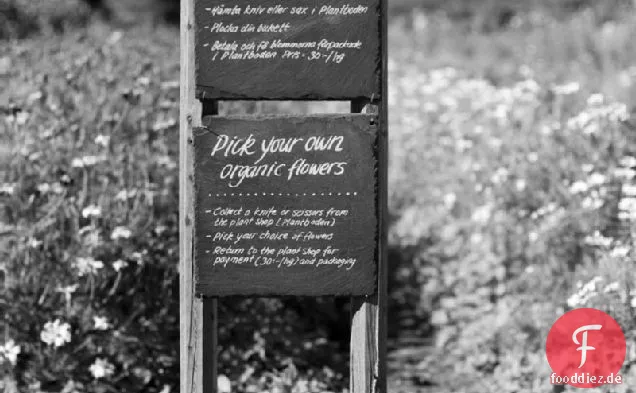 - Hämta kniv eller sax i Plantboden
- Plocka din bukett
- Betala och få blommorna förpackade
i Plantboden Pris - 30:-/hg
Pick your own
organic flowers
- Collect a knife or scissors from
the plant shop (Plantboden)
- Pick your choice of flowers
- Return to the plant shop for
payment (30:-/hg) and packaging
F
fooddiez.de